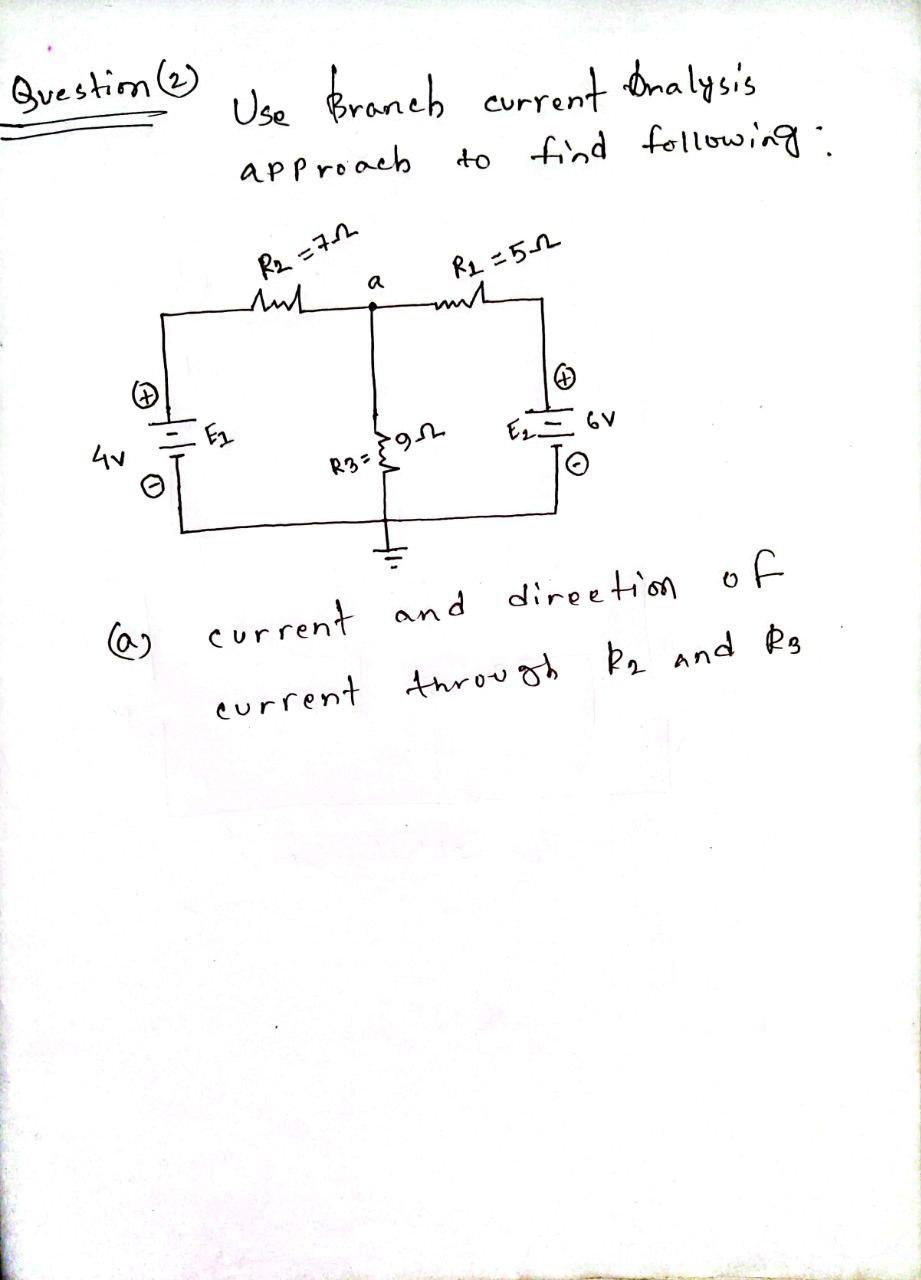 Question (2)
Use Branch current Analysis
approach to find following:
R2 = 7Ω
a
R1 = 5Ω
+
+
4v
E1
R3 = 9Ω
E2
6v
-
-
(a) current and direction of
current through R2 and R3